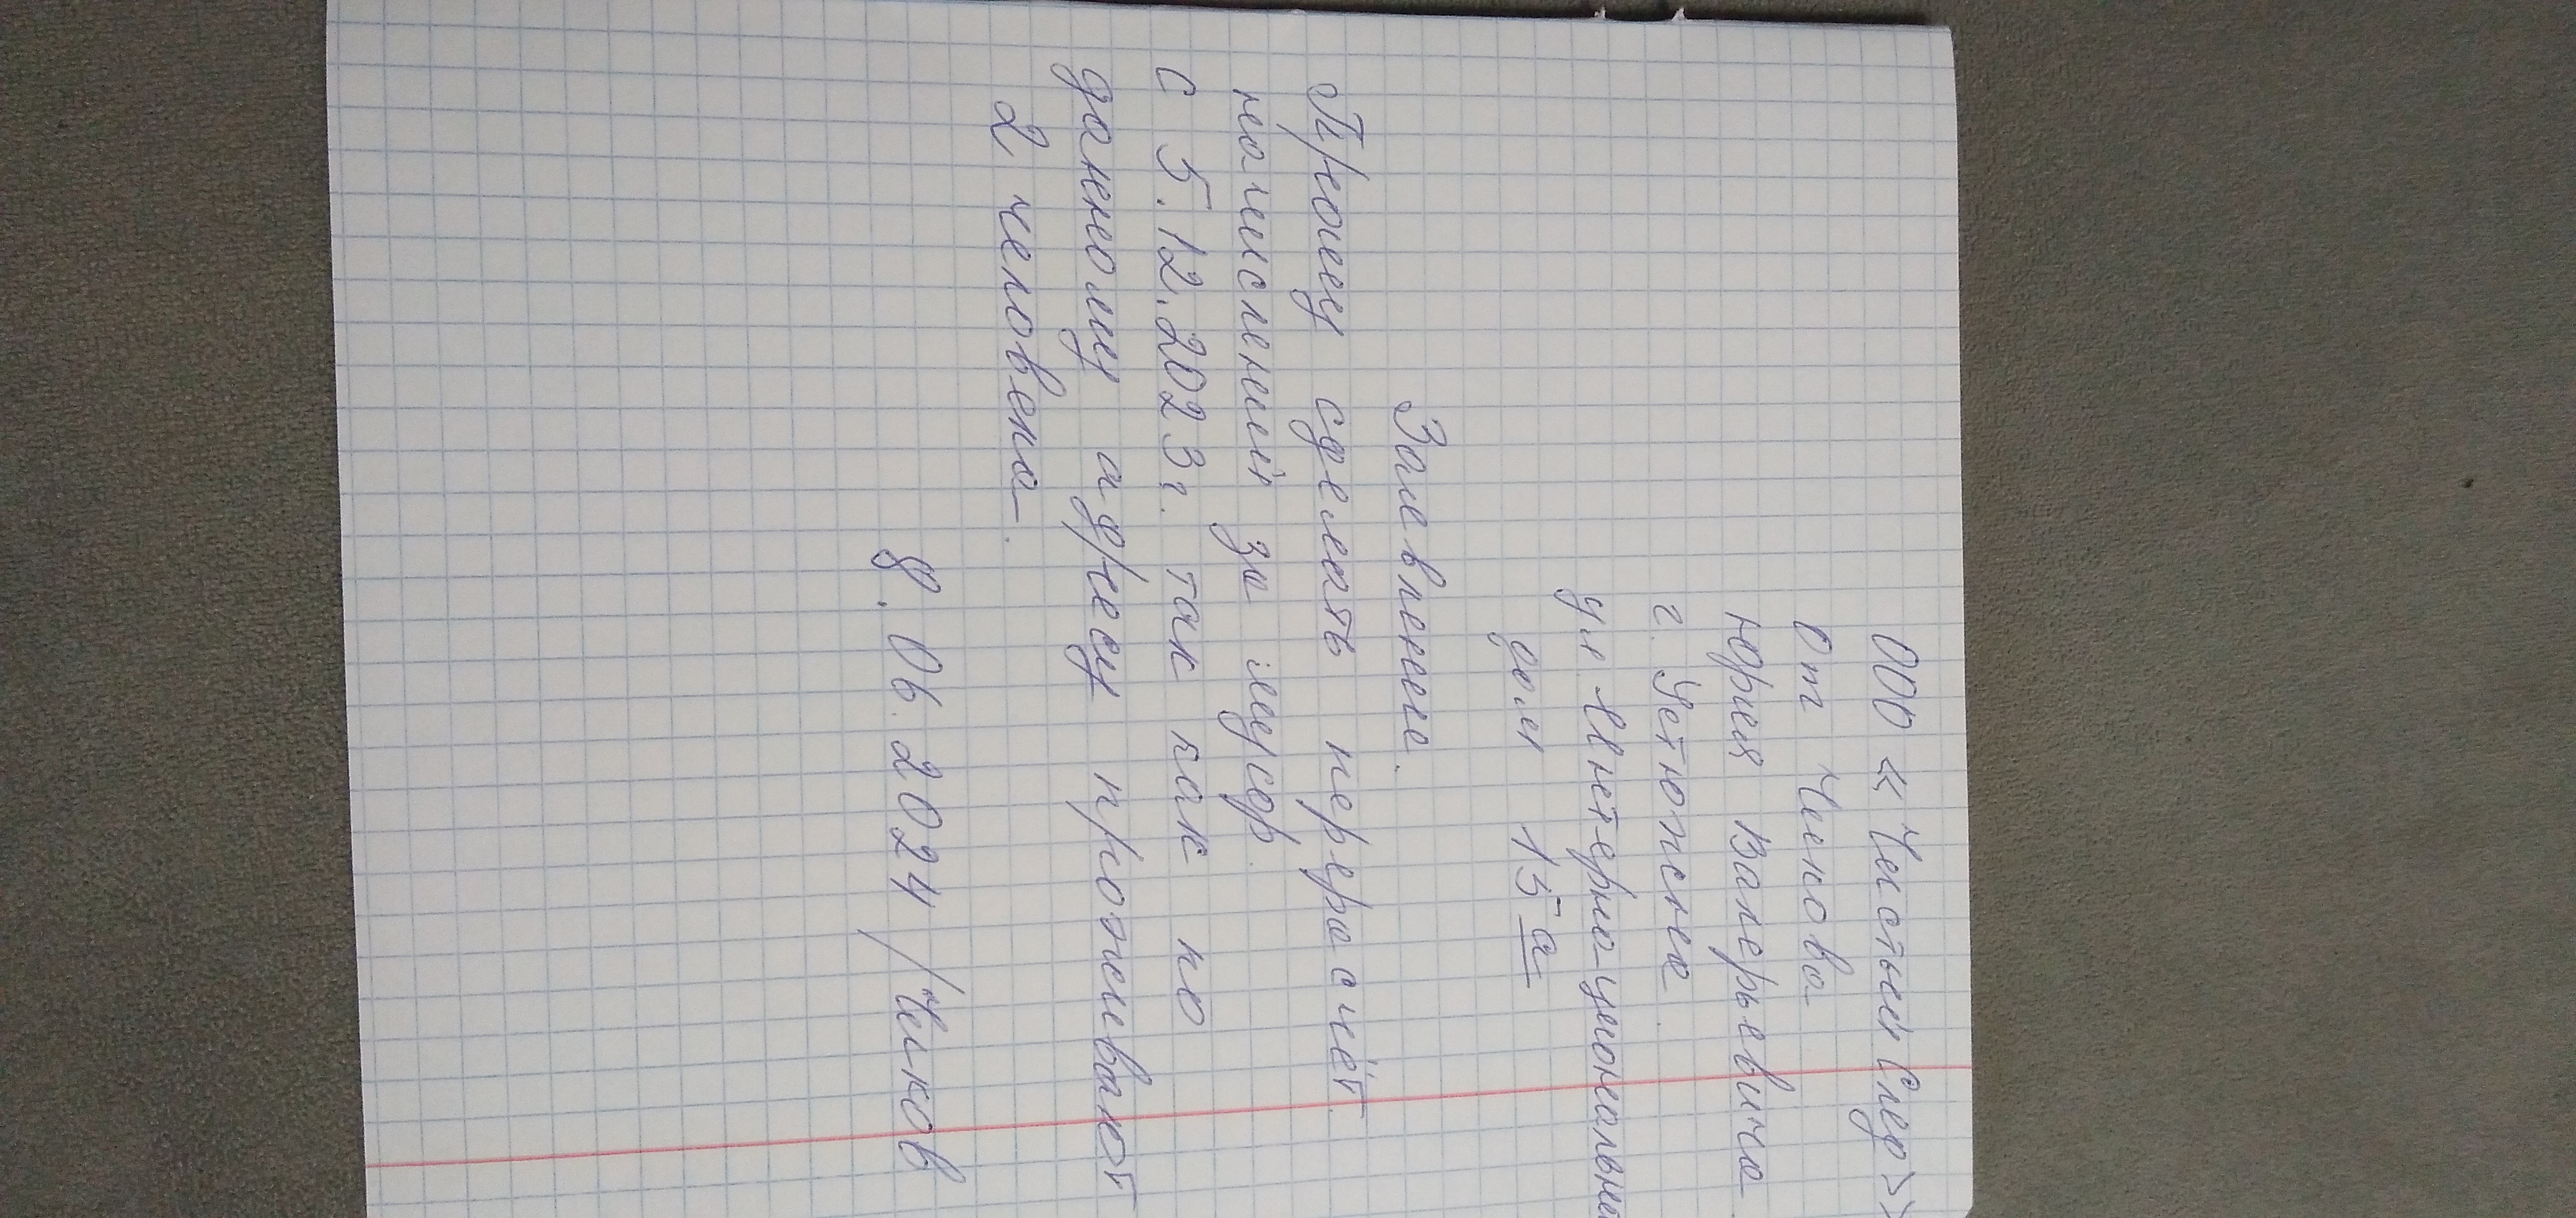 ООО «Чистый След»
От Чилова
Юрия Валерьевича
г. Устюжна
ул. Интернациональна
дом 15 а
Заявление.
Прошу сделать перерасчёт
начислений за мусор.
с 5.12.2023г. так как по
данному адресу проживают
2 человека.
8.06.2024 /Чилов